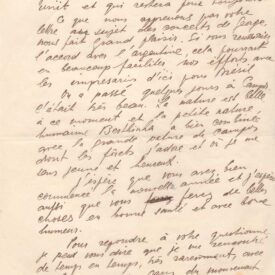 unit et qui restera pour toujours
Ce que nous apprenons par votre
lettre au sujet des concerts de
nous fait grand plaisir. Si vous rencontrez
l'accord avec l'Argentine, cela pourrait
en beaucoup faciliter nos efforts avec
les impresarios d'ici pour Brésil
On a passé quelques jours à Campos
C'était très beau. La nature est belle
à ce moment et la petite nature
humaine a bien combiné
avec la grande nature de Campos
dont les forêts j'adore et où je me
sens jeune et heureux.
J'espère que vous avez bien
commencé la nouvelle année et j'espère
aussi que vous ferez de belles
choses en bonne santé et avec bonne
humeur.
Pour répondre à votre question,
vous dire que je me rencontre
de temps en temps, très rarement, avec
cours du mouvement